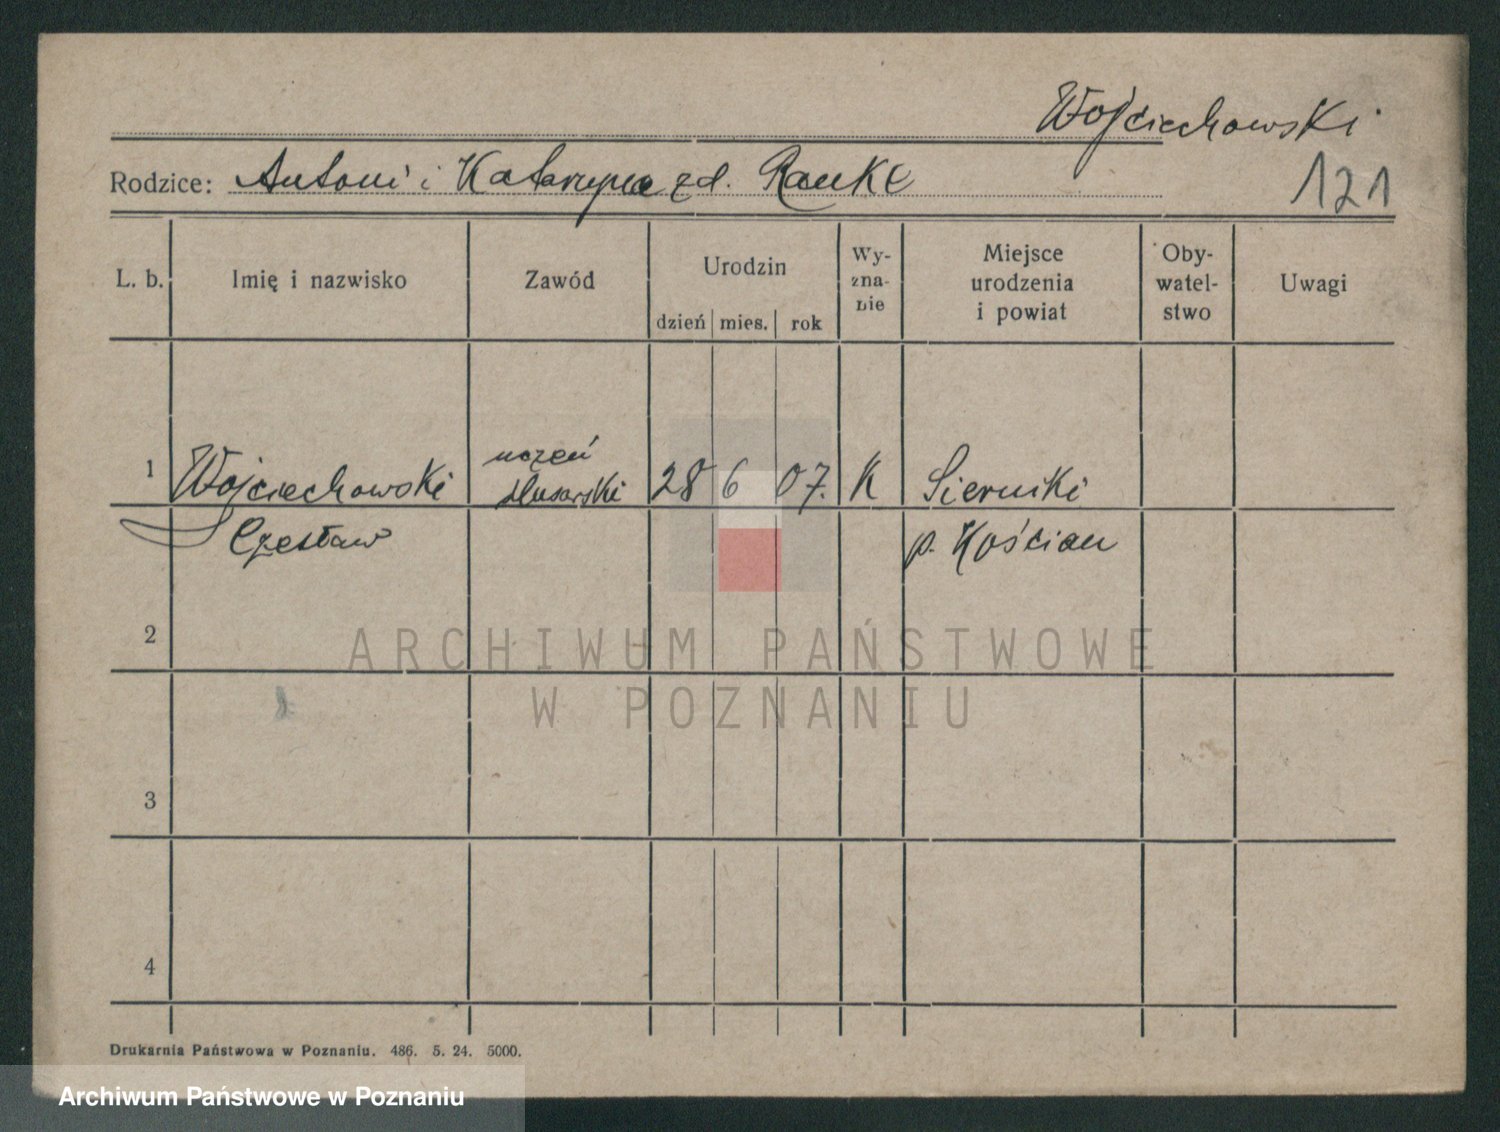 Wojciechowski
Rodzice: Antoni i Katarzyna zd. Ranke
121
L. b. Imię i nazwisko Zawód Urodzin dzień mies. rok Wy-zna-nie Miejsce urodzenia i powiat Oby-watel-stwo Uwagi
1 Wojciechowski uczeń ślusarski 28 6 07. K Sierniki
Czesław p. Kościan
2
ARCHIWUM PAŃSTWOWE
W POZNANIU
3
4
Drukarnia Państwowa w Poznaniu. 486. 5. 24. 5000.
Archiwum Państwowe w Poznaniu